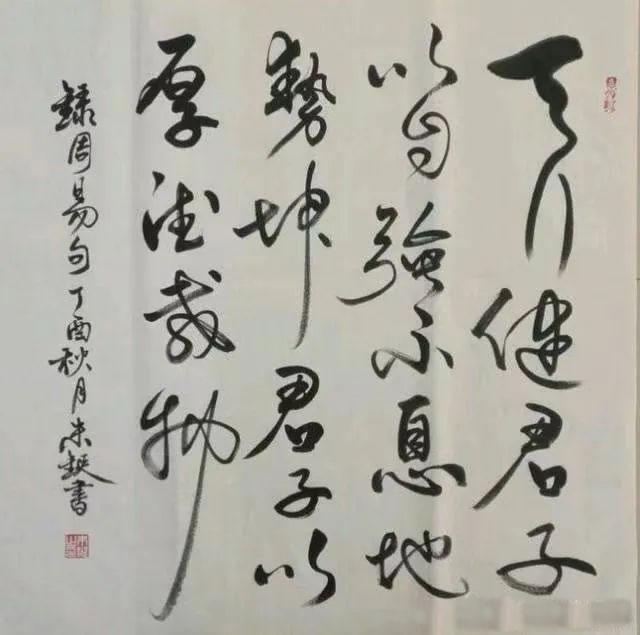 天行健君子
以自強不息地
勢坤君子以
厚德載物
録周易句丁酉秋月朱挺書